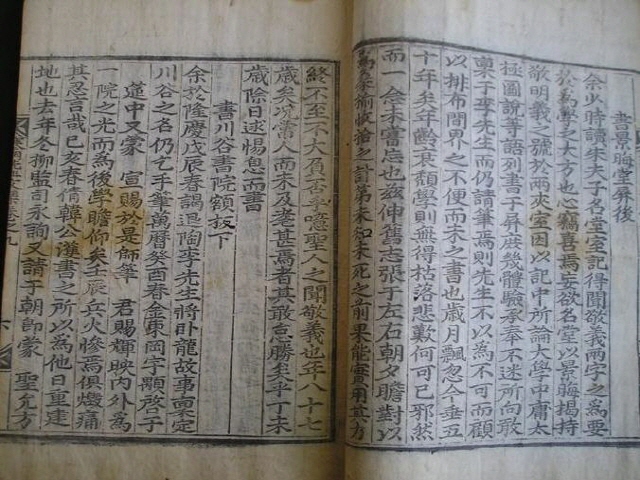 書景晦堂屛後
余少時讀朱夫子名堂室記得聞敬義兩字之爲要
於爲學之大方也心竊喜焉妄欲名堂以景晦揭持
敬明義之號於兩夾室因以記中所論大學中庸太
極圖說等語列書于屛庶幾體驗承奉不迷所向敢
稟于李先生而仍請筆焉則先生不以爲不可而顧
以排布間界之不便而未之書也歲月飄忽今垂五
十年矣年齡衰頹學則無得枯落悲歎何可已邪然
而一念未嘗忘也玆伸舊志張于左右朝夕瞻對以
爲桑楡收拾之計第未知未死之前果能實用其力
終不至不大負否乎噫聖人之聞敬義也年八十七
歲矣况常人而未及耄甚焉者其敢怠勝矣乎丁未
歲除日逑惕息而書
書川谷書院額板下
余於隆慶戊辰春謁退陶李先生將卧龍故事面定
川谷之名仍乞手筆萬曆癸酉春金東岡宇顒啓于
筵中又蒙 宣賜於是師筆 君賜輝映内外爲
一院之光而爲後學瞻仰矣壬辰兵火慘焉俱燬痛
其忍言哉己亥春倩韓公濩書之所以爲他日重建
地也去年冬柳監司永詢又請于朝卽蒙 聖允方